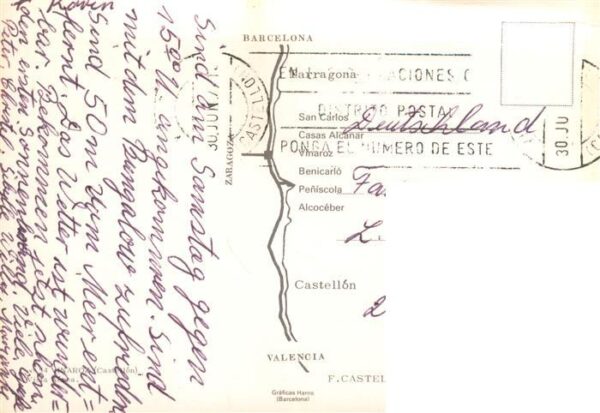 Sind am Samstag gegen
15⁰⁰ U. angekommen. Sind
mit dem Bungalow zufrieden
Sind 50 m vom Meer ent=
fernt. Das Wetter ist wunder=
bar. Bekommen jetzt
den ersten Sonnenbrand. Viele
BARCELONA
Tarragona
San Carlos
Casas Alcanar
Vinaroz
Benicarló
Peñíscola
Alcocéber
ZARAGOZA
Castellón
VALENCIA
F. CASTEL
Gráficas Harno
(Barcelona)
VINAROZ (Castellón)
EN
ACIONES
DISTRITO POSTAL
PONGA EL NUMERO DE ESTE
30 JUN
CASTELLO
30 JU
Deutschland
Fa
L
2